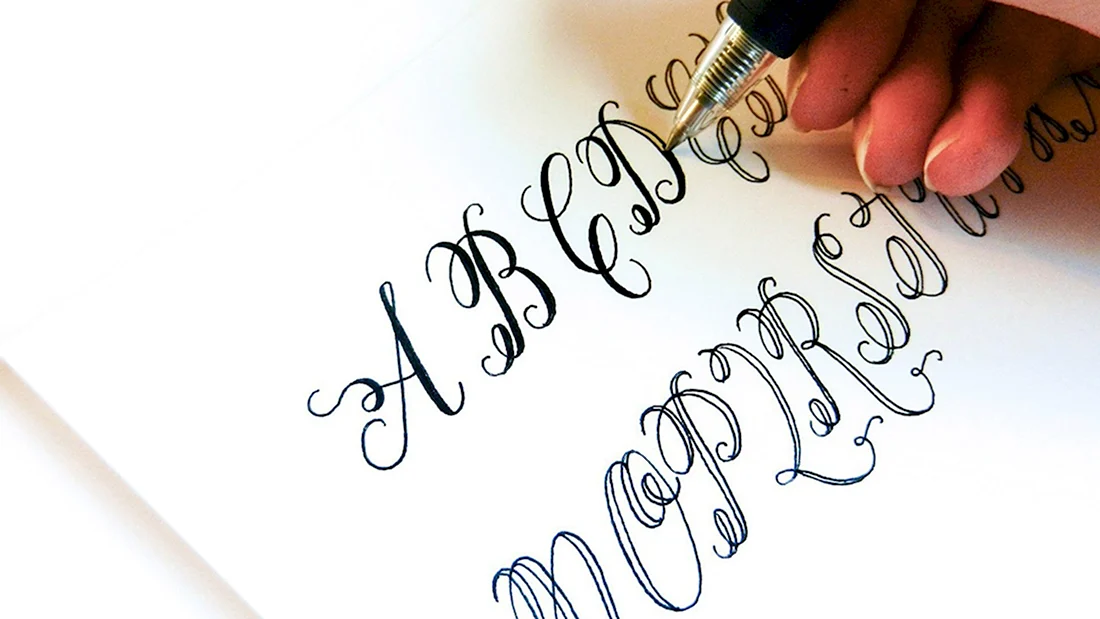 A B C D E
M O P Q R S T U